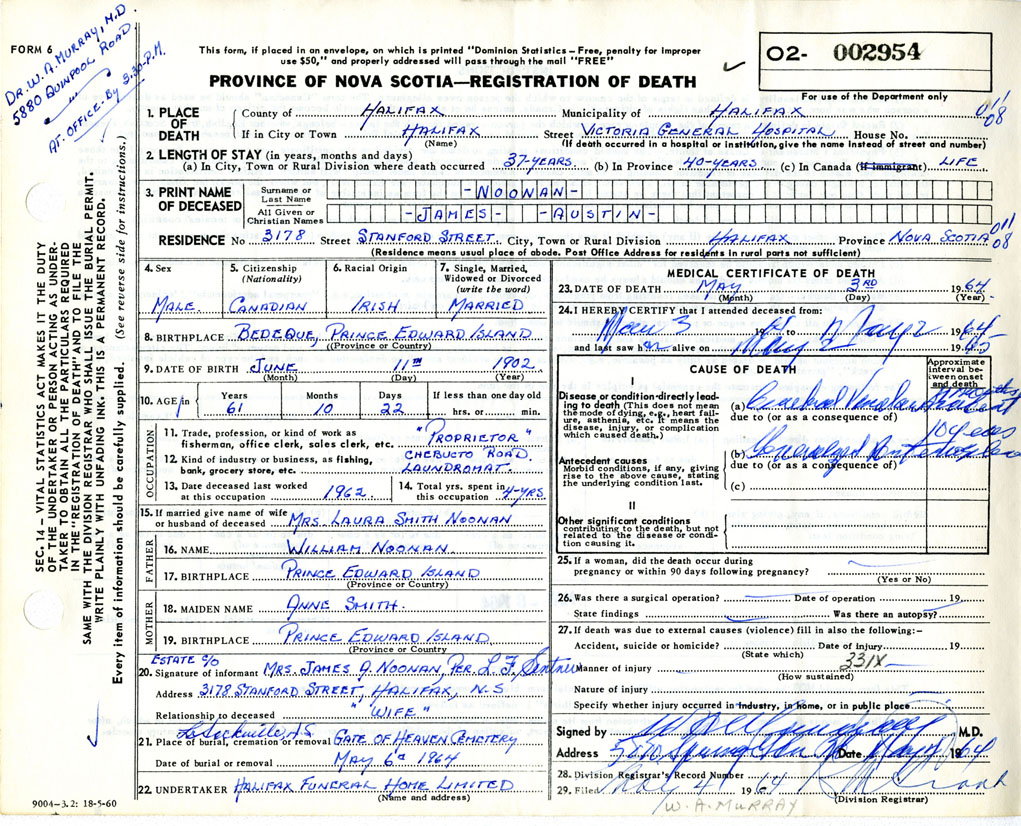 DR. W. A. MURRAY, M.D.
5880 QUINPOOL ROAD
AT. OFFICE - BY 3:30 P.M.
FORM 6
This form, if placed in an envelope, on which is printed "Dominion Statistics – Free, penalty for improper
use $50," and properly addressed will pass through the mail "FREE"
02- 002954
For use of the Department only
PROVINCE OF NOVA SCOTIA—REGISTRATION OF DEATH
1. PLACE OF DEATH
County of HALIFAX Municipality of HALIFAX
If in City or Town HALIFAX Street VICTORIA GENERAL HOSPITAL House No.
(Name) (If death occurred in a hospital or institution, give the name instead of street and number)
2. LENGTH OF STAY (in years, months and days)
(a) In City, Town or Rural Division where death occurred 37-YEARS. (b) In Province 40-YEARS (c) In Canada (If immigrant) LIFE
3. PRINT NAME OF DECEASED
Surname or Last Name -NOONAN-
All Given or Christian Names -JAMES- -AUSTIN-
RESIDENCE No 3178 Street STANFORD STREET. City, Town or Rural Division HALIFAX Province NOVA SCOTIA
(Residence means usual place of abode. Post Office Address for residents in rural parts not sufficient)
011/08
011/08
SEC. 14 – VITAL STATISTICS ACT MAKES IT THE DUTY
OF THE UNDERTAKER OR PERSON ACTING AS UNDER-
TAKER TO OBTAIN ALL THE PARTICULARS REQUIRED
IN THE "REGISTRATION OF DEATH" AND TO FILE THE
SAME WITH THE DIVISION REGISTRAR WHO SHALL ISSUE THE BURIAL PERMIT.
WRITE PLAINLY WITH UNFADING INK. THIS IS A PERMANENT RECORD.
Every item of information should be carefully supplied. (See reverse side for instructions.)
4. Sex MALE.
5. Citizenship (Nationality) CANADIAN
6. Racial Origin IRISH
7. Single, Married, Widowed or Divorced (write the word) MARRIED
8. BIRTHPLACE BEDEQUE, PRINCE EDWARD ISLAND
(Province or Country)
9. DATE OF BIRTH JUNE 11TH 1902
(Month) (Day) (Year)
10. AGE in Years 61 Months 10 Days 22 If less than one day old hrs. or min.
OCCUPATION
11. Trade, profession, or kind of work as fisherman, office clerk, sales clerk, etc. "PROPRIETOR"
12. Kind of industry or business, as fishing, bank, grocery store, etc. CHEBUCTO ROAD. LAUNDROMAT.
13. Date deceased last worked at this occupation 1962
14. Total yrs. spent in this occupation 4-YRS.
15. If married give name of wife or husband of deceased MRS. LAURA SMITH NOONAN
FATHER
16. NAME WILLIAM NOONAN
17. BIRTHPLACE PRINCE EDWARD ISLAND
(Province or Country)
MOTHER
18. MAIDEN NAME ANNE SMITH.
19. BIRTHPLACE PRINCE EDWARD ISLAND
(Province or Country
ESTATE C/O
20. Signature of informant MRS. JAMES A. NOONAN, PER. L. F.
Address 3178 STANFORD STREET, HALIFAX, N.S
Relationship to deceased "WIFE"
21. Place of burial, cremation or removal GATE OF HEAVEN CEMETERY
Date of burial or removal MAY 6th 1964
22. UNDERTAKER HALIFAX FUNERAL HOME LIMITED
(Name and address)
9004—3.2: 18-5-60
MEDICAL CERTIFICATE OF DEATH
23. DATE OF DEATH MAY 3RD 1964
(Month) (Day) (Year)
24. I HEREBY CERTIFY that I attended deceased from:
3 to May 2 1964
and last saw h alive on May 2 19
CAUSE OF DEATH
Approximate interval between onset and death
I
Disease or condition directly leading to death (This does not mean the mode of dying, e.g., heart failure, asthenia, etc. It means the disease, injury, or complication which caused death.)
(a) Cerebral Vascular
due to (or as a consequence of)
Antecedent causes
Morbid conditions, if any, giving rise to the above cause, stating the underlying condition last.
(b) Generalized
due to (or as a consequence of)
(c)
II
Other significant conditions
contributing to the death, but not related to the disease or condition causing it.
25. If a woman, did the death occur during pregnancy or within 90 days following pregnancy?
(Yes or No)
26. Was there a surgical operation? Date of operation 19
State findings Was there an autopsy?
27. If death was due to external causes (violence) fill in also the following:–
Accident, suicide or homicide? Date of injury 19
(State which)
331X
Manner of injury
(How sustained)
Nature of injury
Specify whether injury occurred in industry, in home, or in public place
Signed by M.D.
Address Spring Date May 1964
28. Division Registrar's Record Number
29. Filed May 4 1964
(Division Registrar)
W. A. MURRAY